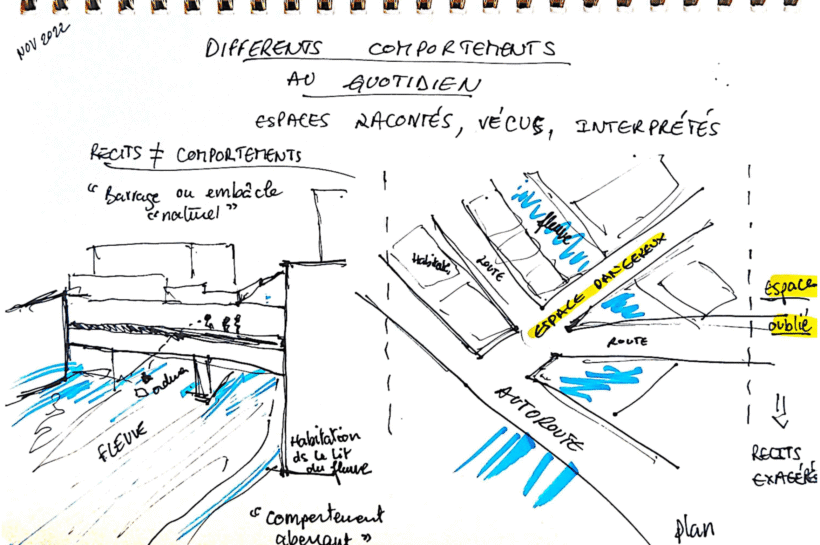 NOV 2022
DIFFERENTS COMPORTEMENTS
AU QUOTIDIEN
ESPACES RACONTÉS, VÉCUS, INTERPRÉTÉS
RECITS ≠ COMPORTEMENTS
"Barrage ou embâcle
"naturel"
ordures
FLEUVE
Habitation
ds le lit
du fleuve
"Comportement
aberrant"
Habitatio
ROUTE
fleuve
ESPACE DANGEREUX
ROUTE
AUTOROUTE
plan
espace
oublié
⇓
RECITS
EXAGÉRÉS